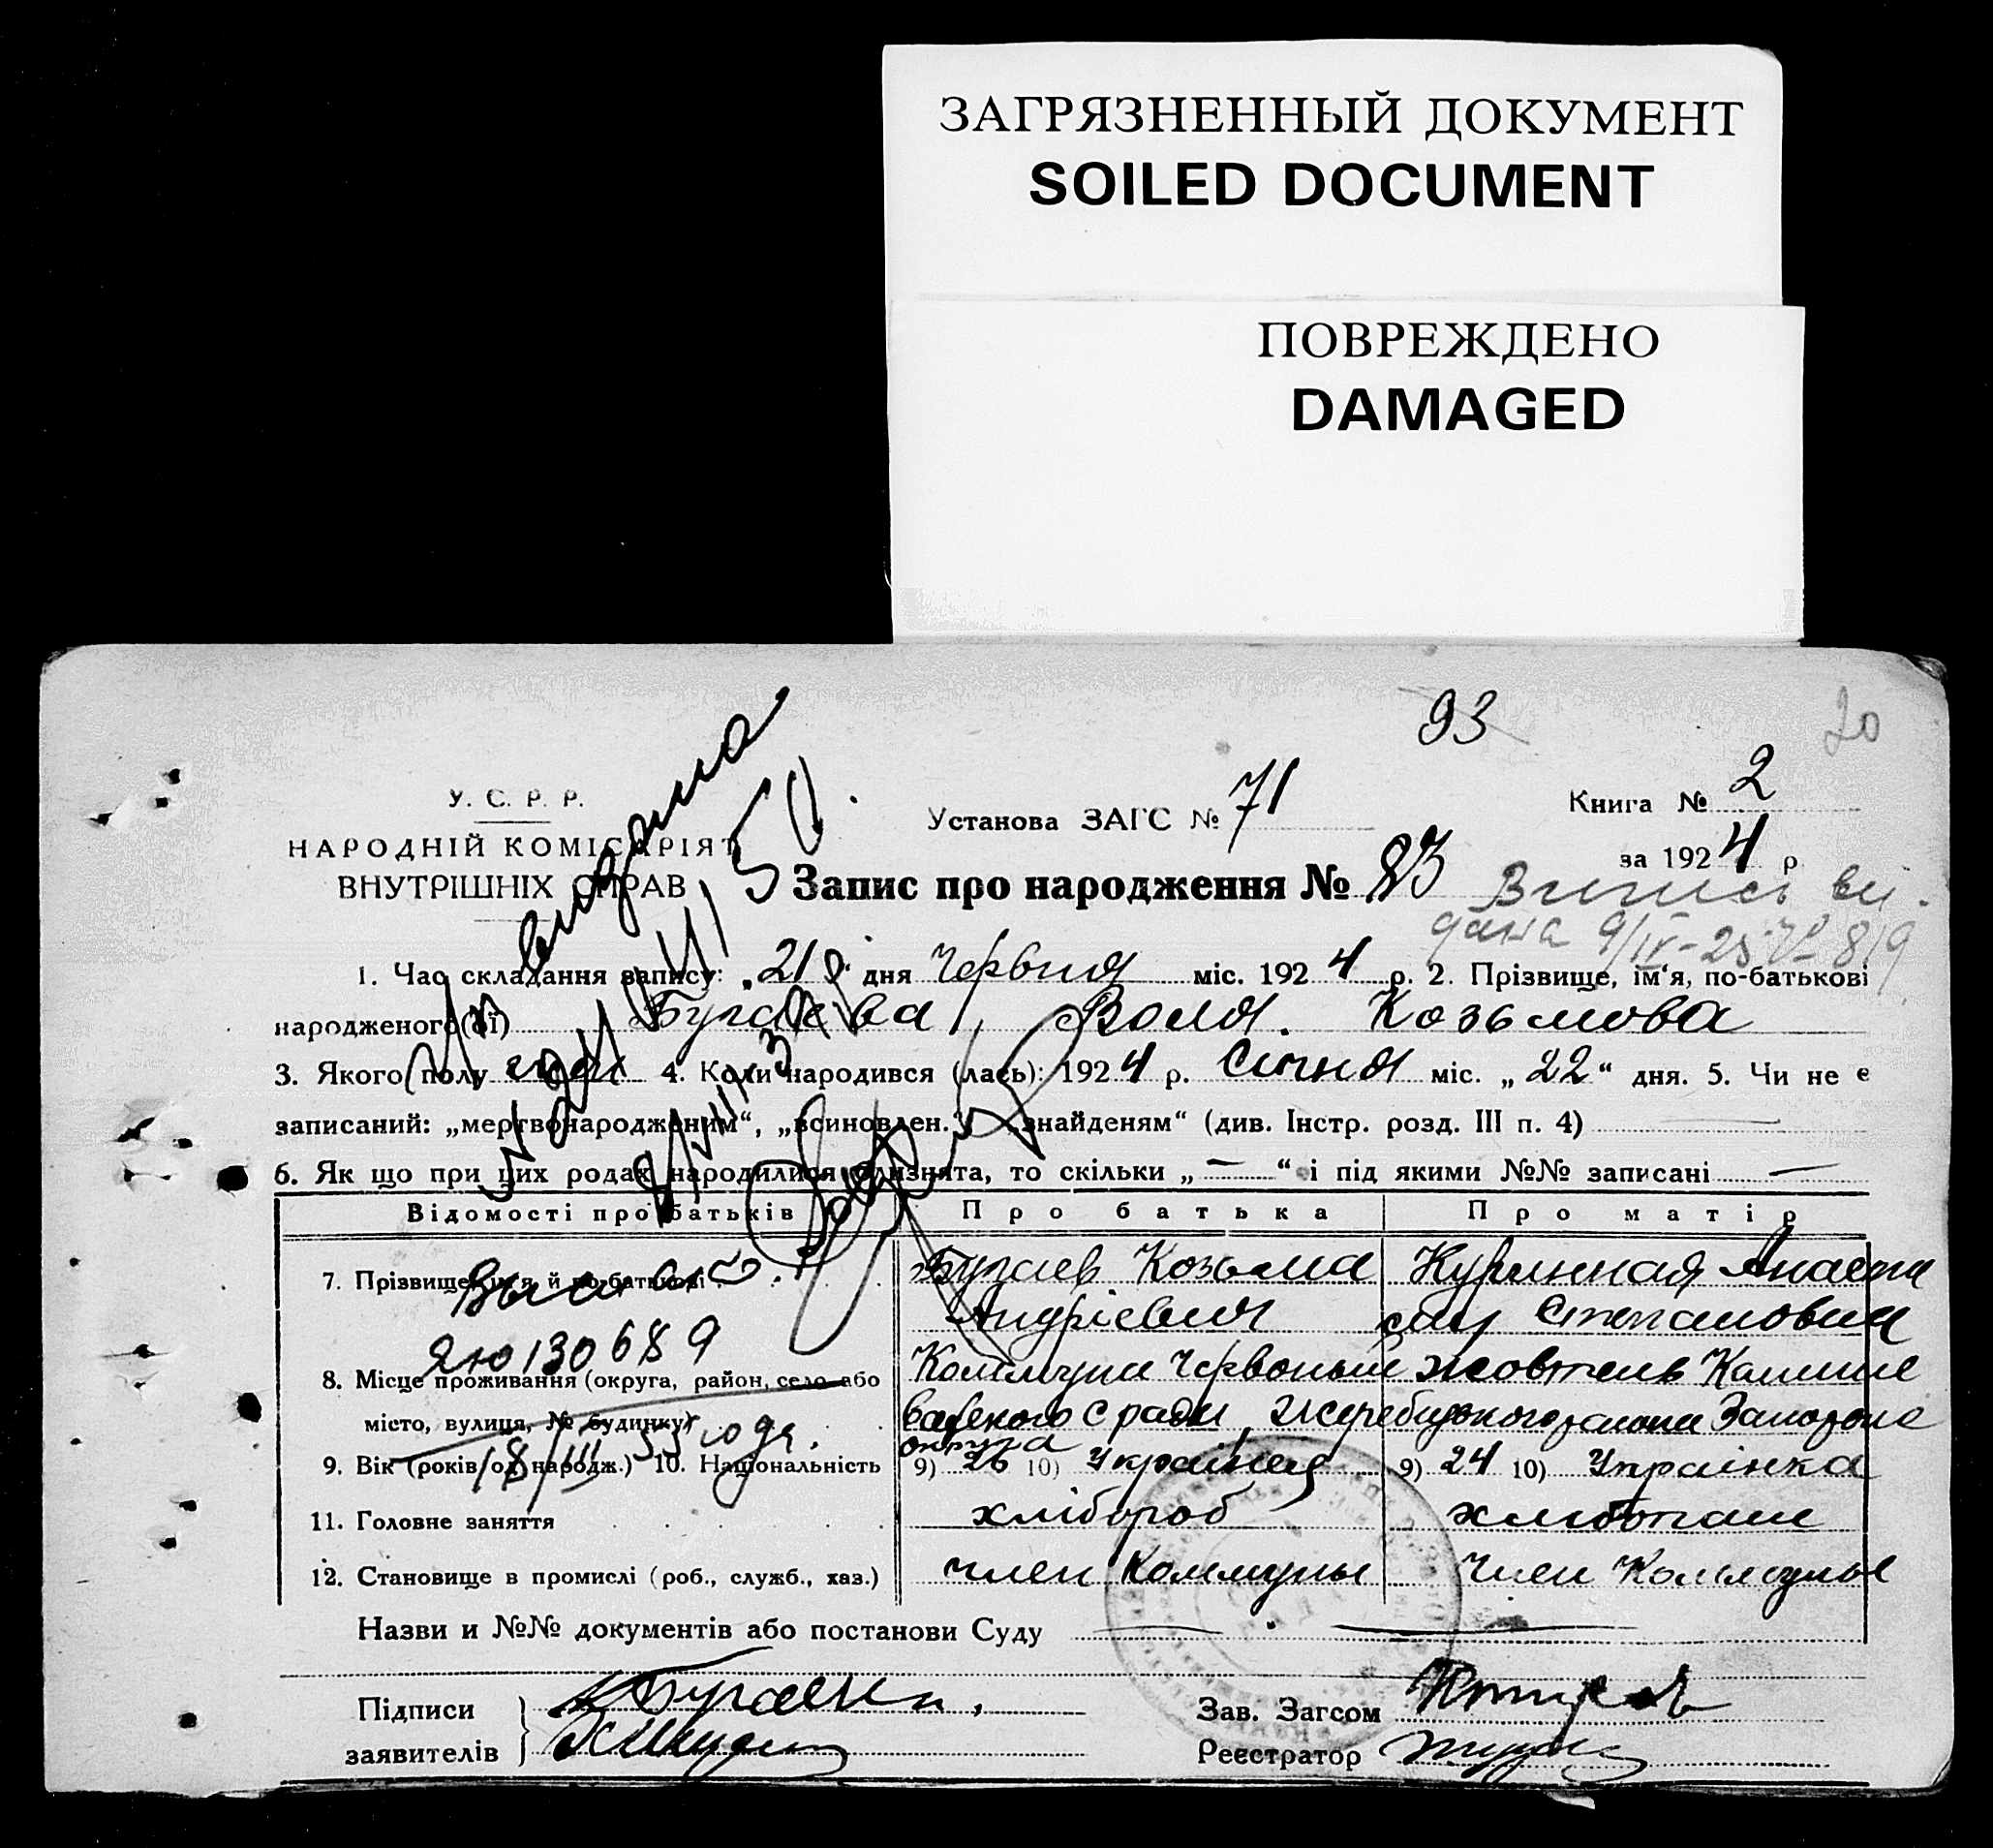 ЗАГРЯЗНЕННЫЙ ДОКУМЕНТ
SOILED DOCUMENT
ПОВРЕЖДЕНО
DAMAGED
93
20
У. С. Р. Р.
НАРОДНІЙ КОМІСАРІЯТ
ВНУТРІШНІХ СПРАВ
Установа ЗАГС № 71
Книга № 2
за 1924 р
Запис про народження № 83
дана 9/IV-25 № 819
1. Час складання запису: „21" дня Червня міс. 1924 р. 2. Прізвище, ім'я, по-батькові
народженого(ої) Бугаева Воля. Козьмова
3. Якого полу 4. Коли народився (лась): 1924 р. Січня міс. „22" дня. 5. Чи не є
записаний: „мертвонародженим", „всиновлен." „знайденям" (див. Інстр. розд. III п. 4)
6. Як що при цих родах народилися близнята, то скільки „—" і під якими №№ записані —
Відомості про батьків Про батька Про матір
7. Прізвище, им'я й по-батькові Бугаев Козьма Куринная Анаста
Андріевич Степановна
8. Місце проживання (округа, район, село або Коммуни Червоный жовтень Камише
місто, вулиця, № будинку) ваского с ради, Жеребцького района Запорожс
округа
9. Вік (років од народж.) 10. Національність 9) 26 10) Украінец 9) 24 10) Украінка
11. Головне заняття хлібороб
12. Становище в промислі (роб., служб., хаз.) член Коммуны Член Коммуны
Назви и №№ документів або постанови Суду
видана
ЯЮ 130689
18/III 55 года.
Підписи заявителів Бугаев
Зав. Загсом
Реєстратор